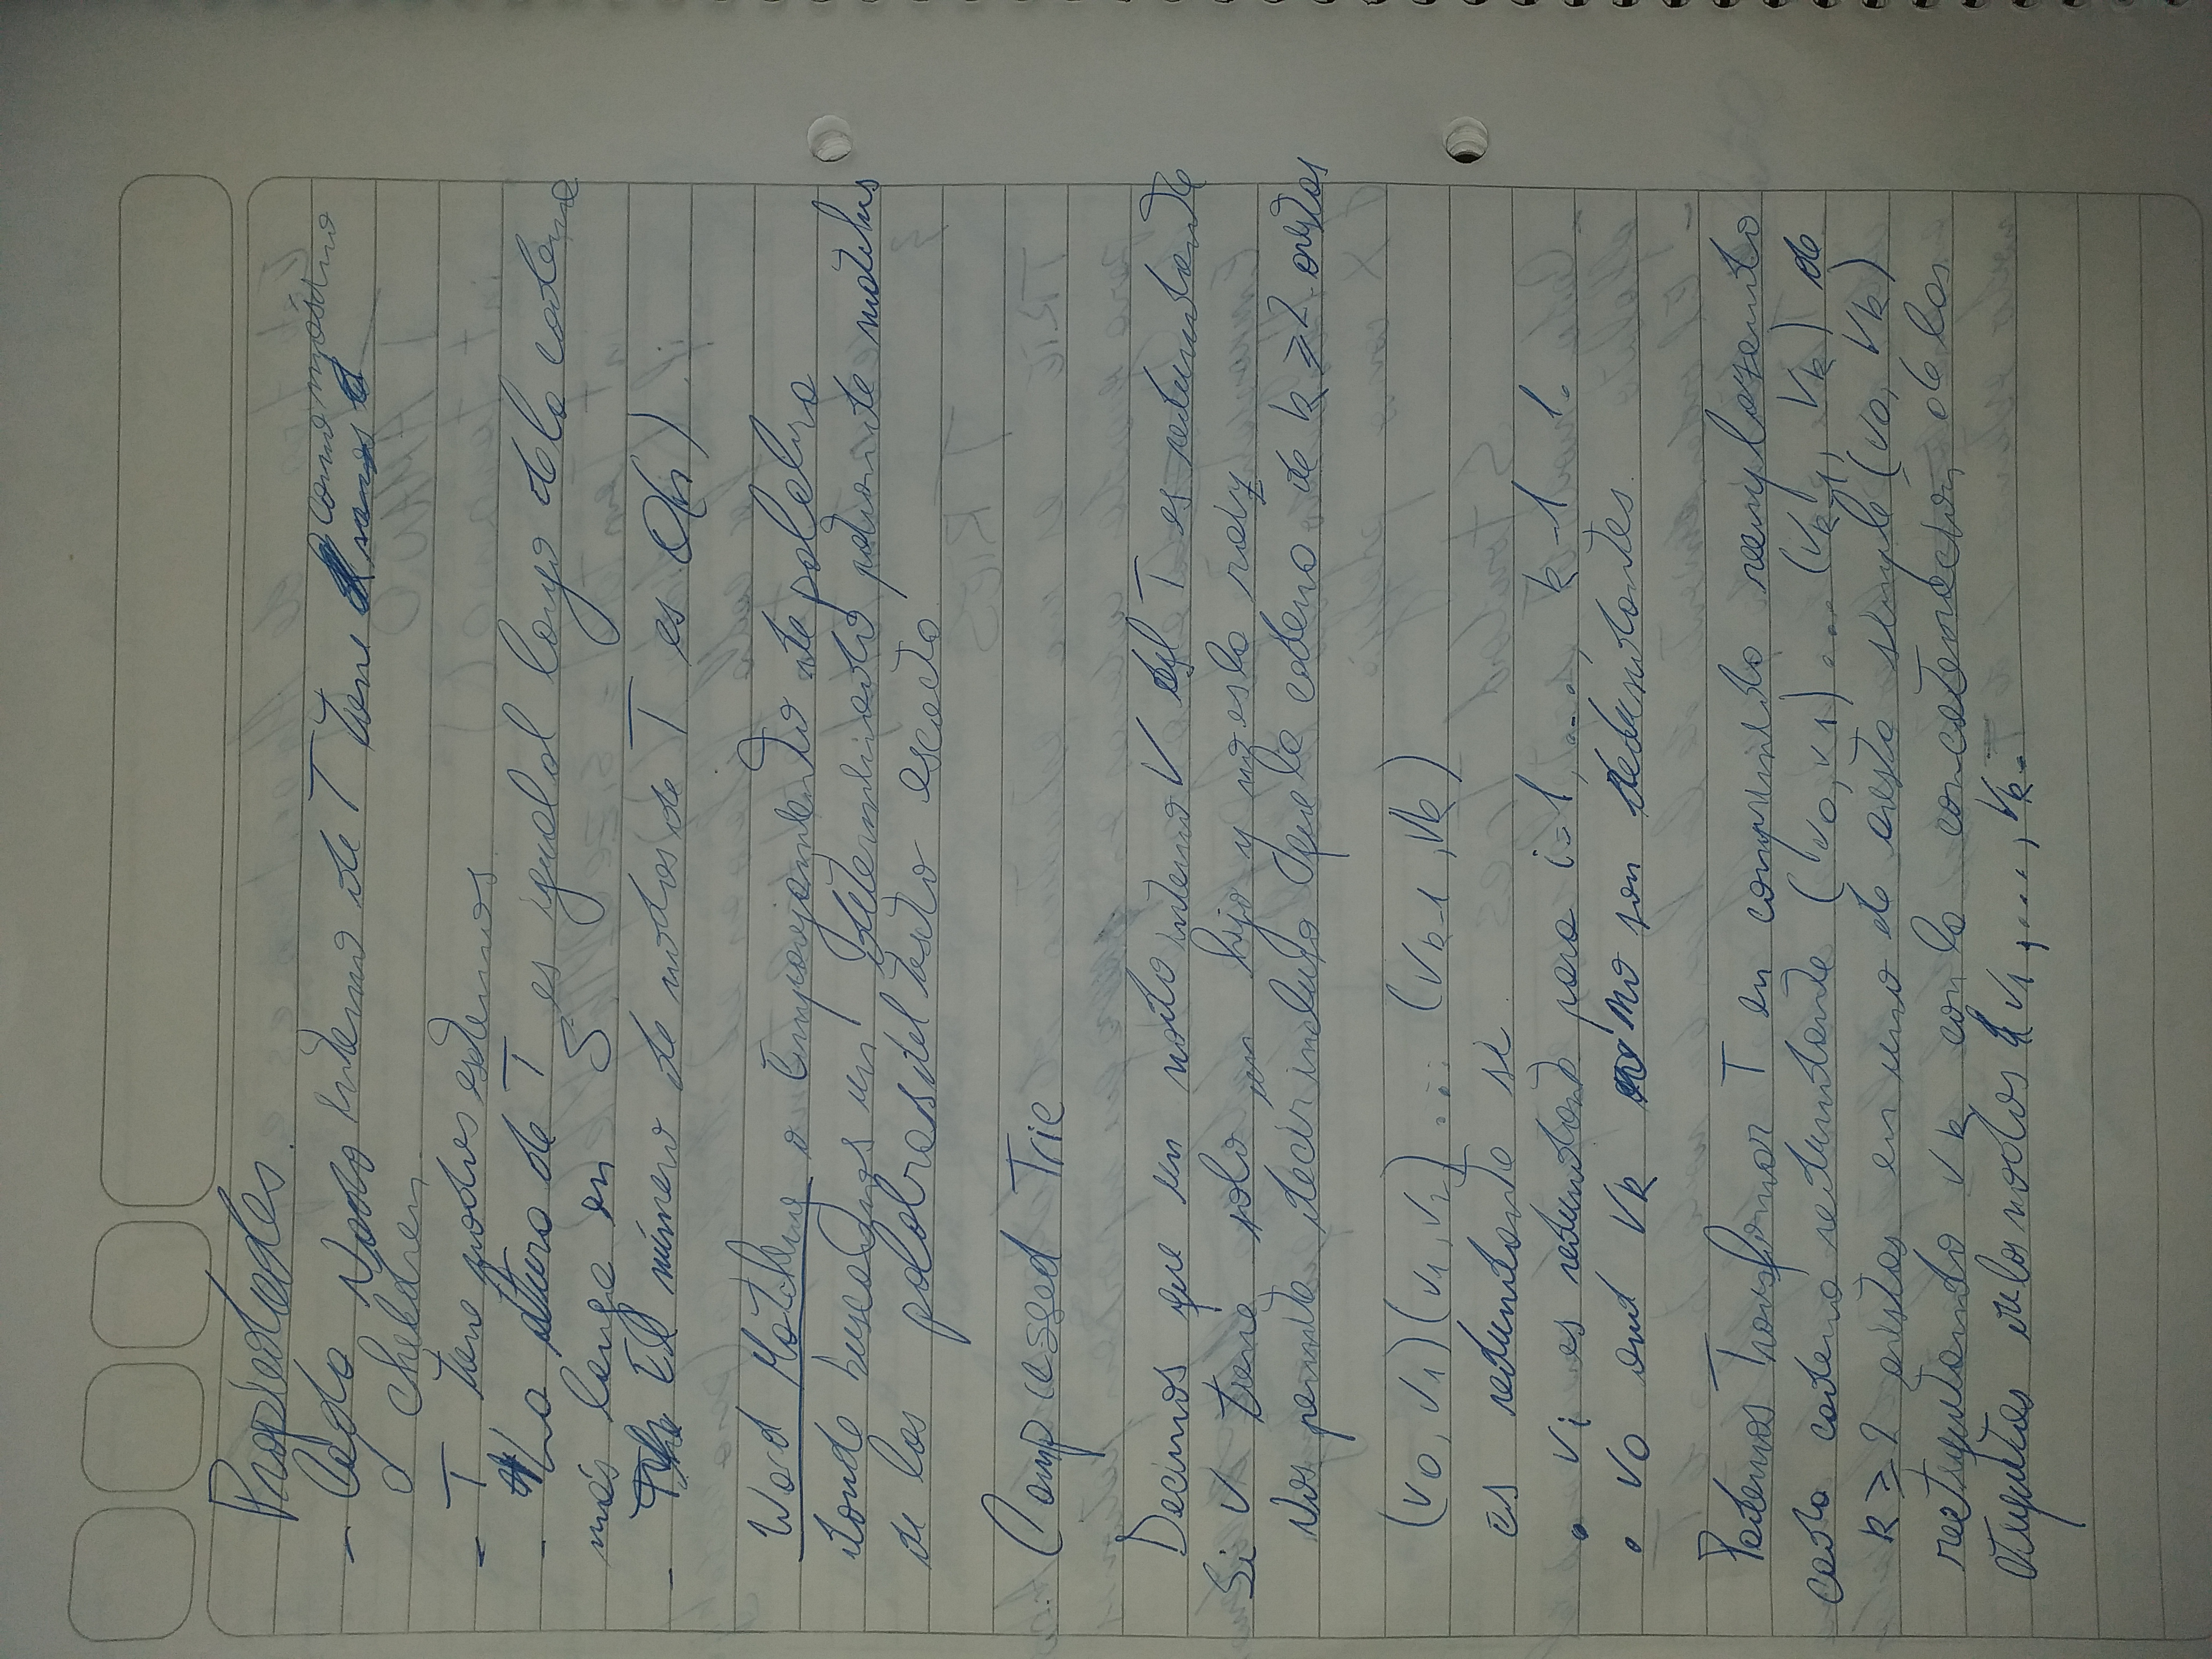 Propiedades.
- Cada Nodo interno de T tiene como máximo
d children.
- T tiene nodos externos.
- La altura de T es igual al largo de la cadena
más larga en S
- El número de nodos de T es O(n).
Word Matching o Emparejamiento de palabra
donde buscamos un determinado patron de matches
de las palabras del texto exacto
Compressed Trie
Decimos que un nodo interno V del T es redundante
Si V tiene solo un hijo y no es la raiz
Nos permite decir incluso que la cadena de k ≥ 2 aristas
(v0, v1)(v1, v2) ... (vk-1, vk)
es redundante si.
• vi es redundante para i=1, ..., k-1 1.
• v0 and vk no son redundantes.
Podemos Transformar T en comprimido reemplazando
cada cadena redundante (v0, v1) ... (vk-1, vk) de
k ≥ 2 aristas en uno de arista simple (v0, vk)
reetiquetando vk con la concatenación de las
etiquetas de los nodos v1, ..., vk.